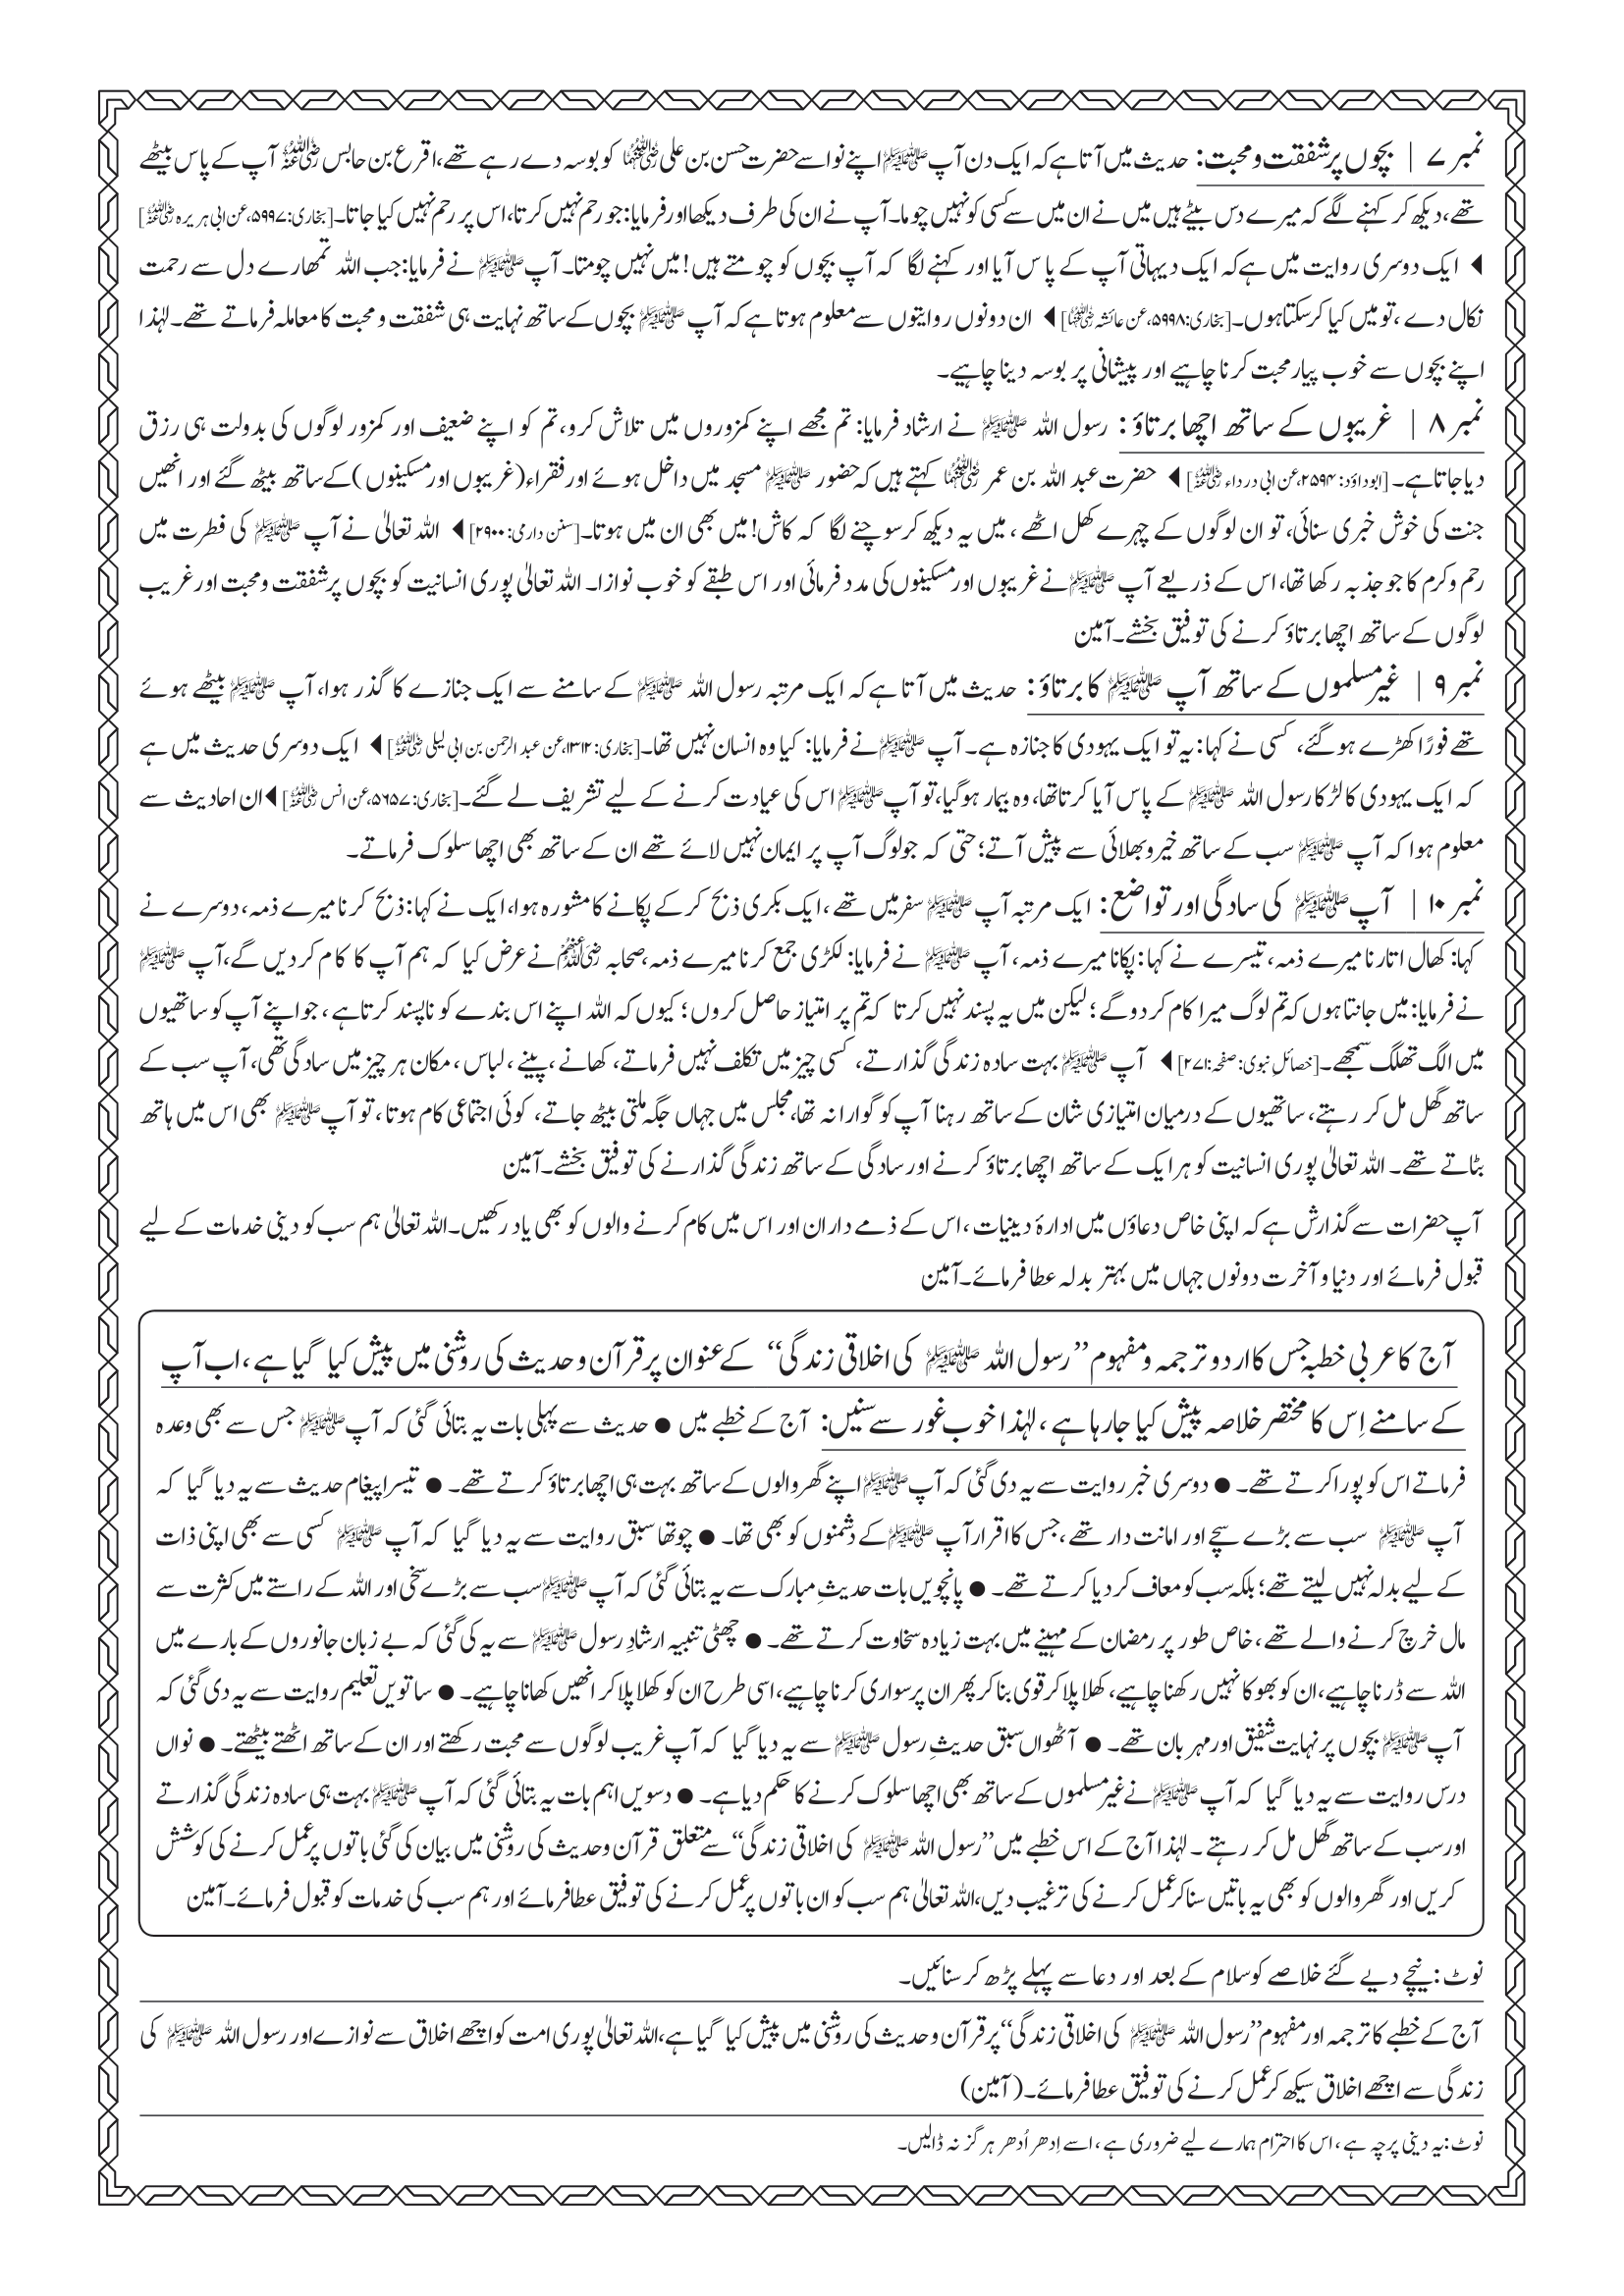 نمبر ۷ | بچوں پر شفقت و محبت: حدیث میں آتا ہے کہ ایک دن آپ ﷺ اپنے نواسے حضرت حسن بن علی رضی اللہ عنہما کو بوسہ دے رہے تھے، اقرع بن حابس رضی اللہ عنہ آپ کے پاس بیٹھے
تھے، دیکھ کر کہنے لگے کہ میرے دس بیٹے ہیں میں نے ان میں سے کسی کو نہیں چوما۔ آپ نے ان کی طرف دیکھا اور فرمایا: جو رحم نہیں کرتا، اس پر رحم نہیں کیا جاتا۔ [بخاری: ۵۹۹۷، عن ابی ہریرہ رضی اللہ عنہ]
◀ ایک دوسری روایت میں ہے کہ ایک دیہاتی آپ کے پاس آیا اور کہنے لگا کہ آپ بچوں کو چومتے ہیں! میں نہیں چومتا۔ آپ ﷺ نے فرمایا: جب اللہ تمھارے دل سے رحمت
نکال دے، تو میں کیا کر سکتا ہوں۔ [بخاری: ۵۹۹۸، عن عائشہ رضی اللہ عنہا] ◀ ان دونوں روایتوں سے معلوم ہوتا ہے کہ آپ ﷺ بچوں کے ساتھ نہایت ہی شفقت و محبت کا معاملہ فرماتے تھے۔ لہٰذا
اپنے بچوں سے خوب پیار محبت کرنا چاہیے اور پیشانی پر بوسہ دینا چاہیے۔
نمبر ۸ | غریبوں کے ساتھ اچھا برتاؤ: رسول اللہ ﷺ نے ارشاد فرمایا: تم مجھے اپنے کمزوروں میں تلاش کرو، تم کو اپنے ضعیف اور کمزور لوگوں کی بدولت ہی رزق
دیا جاتا ہے۔ [ابوداؤد: ۲۵۹۴، عن ابی درداء رضی اللہ عنہ] ◀ حضرت عبد اللہ بن عمر رضی اللہ عنہما کہتے ہیں کہ حضور ﷺ مسجد میں داخل ہوئے اور فقراء (غریبوں اور مسکینوں) کے ساتھ بیٹھ گئے اور انھیں
جنت کی خوش خبری سنائی، تو ان لوگوں کے چہرے کھل اٹھے، میں یہ دیکھ کر سوچنے لگا کہ کاش! میں بھی ان میں ہوتا۔ [سنن دارمی: ۲۹۰۰] ◀ اللہ تعالیٰ نے آپ ﷺ کی فطرت میں
رحم و کرم کا جو جذبہ رکھا تھا، اس کے ذریعے آپ ﷺ نے غریبوں اور مسکینوں کی مدد فرمائی اور اس طبقے کو خوب نوازا۔ اللہ تعالیٰ پوری انسانیت کو بچوں پر شفقت و محبت اور غریب
لوگوں کے ساتھ اچھا برتاؤ کرنے کی توفیق بخشے۔ آمین
نمبر ۹ | غیر مسلموں کے ساتھ آپ ﷺ کا برتاؤ: حدیث میں آتا ہے کہ ایک مرتبہ رسول اللہ ﷺ کے سامنے سے ایک جنازے کا گذر ہوا، آپ ﷺ بیٹھے ہوئے
تھے فورًا کھڑے ہو گئے، کسی نے کہا: یہ تو ایک یہودی کا جنازہ ہے۔ آپ ﷺ نے فرمایا: کیا وہ انسان نہیں تھا۔ [بخاری: ۱۳۱۲، عن عبد الرحمن بن ابی لیلی رضی اللہ عنہ] ◀ ایک دوسری حدیث میں ہے
کہ ایک یہودی کا لڑکا رسول اللہ ﷺ کے پاس آیا کرتا تھا، وہ بیمار ہو گیا، تو آپ ﷺ اس کی عیادت کرنے کے لیے تشریف لے گئے۔ [بخاری: ۵۶۵۷، عن انس رضی اللہ عنہ] ◀ ان احادیث سے
معلوم ہوا کہ آپ ﷺ سب کے ساتھ خیر و بھلائی سے پیش آتے؛ حتی کہ جو لوگ آپ پر ایمان نہیں لائے تھے ان کے ساتھ بھی اچھا سلوک فرماتے۔
نمبر ۱۰ | آپ ﷺ کی سادگی اور تواضع: ایک مرتبہ آپ ﷺ سفر میں تھے، ایک بکری ذبح کر کے پکانے کا مشورہ ہوا، ایک نے کہا: ذبح کرنا میرے ذمہ، دوسرے نے
کہا: کھال اتارنا میرے ذمہ، تیسرے نے کہا: پکانا میرے ذمہ، آپ ﷺ نے فرمایا: لکڑی جمع کرنا میرے ذمہ، صحابہ رضی اللہ عنہم نے عرض کیا کہ ہم آپ کا کام کر دیں گے، آپ ﷺ
نے فرمایا: میں جانتا ہوں کہ تم لوگ میرا کام کر دو گے؛ لیکن میں یہ پسند نہیں کرتا کہ تم پر امتیاز حاصل کروں؛ کیوں کہ اللہ اپنے اس بندے کو ناپسند کرتا ہے، جو اپنے آپ کو ساتھیوں
میں الگ تھلگ سمجھے۔ [خصائلِ نبوی: صفحہ: ۲۷۱] ◀ آپ ﷺ بہت سادہ زندگی گذارتے، کسی چیز میں تکلف نہیں فرماتے، کھانے، پینے، لباس، مکان ہر چیز میں سادگی تھی، آپ سب کے
ساتھ گھل مل کر رہتے، ساتھیوں کے درمیان امتیازی شان کے ساتھ رہنا آپ کو گوارا نہ تھا، مجلس میں جہاں جگہ ملتی بیٹھ جاتے، کوئی اجتماعی کام ہوتا، تو آپ ﷺ بھی اس میں ہاتھ
بٹاتے تھے۔ اللہ تعالیٰ پوری انسانیت کو ہر ایک کے ساتھ اچھا برتاؤ کرنے اور سادگی کے ساتھ زندگی گذارنے کی توفیق بخشے۔ آمین
آپ حضرات سے گذارش ہے کہ اپنی خاص دعاؤں میں ادارۂ دینیات، اس کے ذمے داران اور اس میں کام کرنے والوں کو بھی یاد رکھیں۔ اللہ تعالیٰ ہم سب کو دینی خدمات کے لیے
قبول فرمائے اور دنیا و آخرت دونوں جہاں میں بہتر بدلہ عطا فرمائے۔ آمین
آج کا عربی خطبہ جس کا اردو ترجمہ و مفہوم ”رسول اللہ ﷺ کی اخلاقی زندگی“ کے عنوان پر قرآن و حدیث کی روشنی میں پیش کیا گیا ہے، اب آپ
کے سامنے اِس کا مختصر خلاصہ پیش کیا جا رہا ہے، لہٰذا خوب غور سے سنیں: آج کے خطبے میں ● حدیث سے پہلی بات یہ بتائی گئی کہ آپ ﷺ جس سے بھی وعدہ
فرماتے اس کو پورا کرتے تھے۔ ● دوسری خبر روایت سے یہ دی گئی کہ آپ ﷺ اپنے گھر والوں کے ساتھ بہت ہی اچھا برتاؤ کرتے تھے۔ ● تیسرا پیغام حدیث سے یہ دیا گیا کہ
آپ ﷺ سب سے بڑے سچے اور امانت دار تھے، جس کا اقرار آپ ﷺ کے دشمنوں کو بھی تھا۔ ● چوتھا سبق روایت سے یہ دیا گیا کہ آپ ﷺ کسی سے بھی اپنی ذات
کے لیے بدلہ نہیں لیتے تھے؛ بلکہ سب کو معاف کر دیا کرتے تھے۔ ● پانچویں بات حدیثِ مبارک سے یہ بتائی گئی کہ آپ ﷺ سب سے بڑے سخی اور اللہ کے راستے میں کثرت سے
مال خرچ کرنے والے تھے، خاص طور پر رمضان کے مہینے میں بہت زیادہ سخاوت کرتے تھے۔ ● چھٹی تنبیہ ارشادِ رسول ﷺ سے یہ کی گئی کہ بے زبان جانوروں کے بارے میں
اللہ سے ڈرنا چاہیے، ان کو بھوکا نہیں رکھنا چاہیے، کھلا پلا کر قوی بنا کر پھر ان پر سواری کرنا چاہیے، اسی طرح ان کو کھلا پلا کر انھیں کھانا چاہیے۔ ● ساتویں تعلیم روایت سے یہ دی گئی کہ
آپ ﷺ بچوں پر نہایت شفیق اور مہربان تھے۔ ● آٹھواں سبق حدیثِ رسول ﷺ سے یہ دیا گیا کہ آپ غریب لوگوں سے محبت رکھتے اور ان کے ساتھ اٹھتے بیٹھتے۔ ● نواں
درس روایت سے یہ دیا گیا کہ آپ ﷺ نے غیر مسلموں کے ساتھ بھی اچھا سلوک کرنے کا حکم دیا ہے۔ ● دسویں اہم بات یہ بتائی گئی کہ آپ ﷺ بہت ہی سادہ زندگی گذارتے
اور سب کے ساتھ گھل مل کر رہتے۔ لہٰذا آج کے اس خطبے میں ”رسول اللہ ﷺ کی اخلاقی زندگی“ سے متعلق قرآن و حدیث کی روشنی میں بیان کی گئی باتوں پر عمل کرنے کی کوشش
کریں اور گھر والوں کو بھی یہ باتیں سنا کر عمل کرنے کی ترغیب دیں، اللہ تعالیٰ ہم سب کو ان باتوں پر عمل کرنے کی توفیق عطا فرمائے اور ہم سب کی خدمات کو قبول فرمائے۔ آمین
نوٹ: نیچے دیے گئے خلاصے کو سلام کے بعد اور دعا سے پہلے پڑھ کر سنائیں۔
آج کے خطبے کا ترجمہ اور مفہوم ”رسول اللہ ﷺ کی اخلاقی زندگی“ پر قرآن و حدیث کی روشنی میں پیش کیا گیا ہے، اللہ تعالیٰ پوری امت کو اچھے اخلاق سے نوازے اور رسول اللہ ﷺ کی
زندگی سے اچھے اخلاق سیکھ کر عمل کرنے کی توفیق عطا فرمائے۔ (آمین)
نوٹ: یہ دینی پرچہ ہے، اس کا احترام ہمارے لیے ضروری ہے، اسے اِدھر اُدھر ہرگز نہ ڈالیں۔